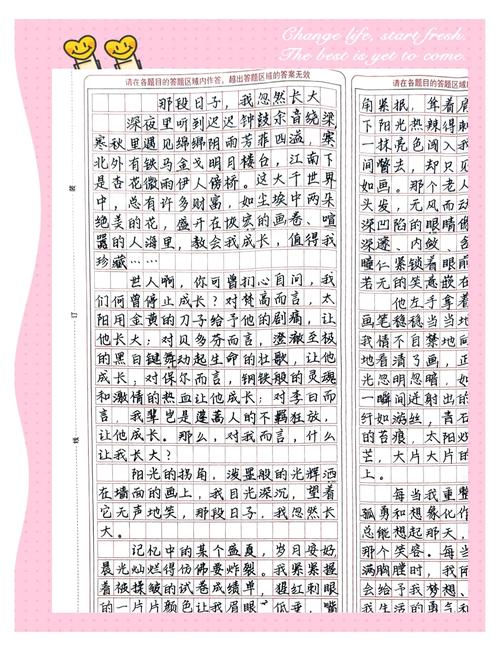 Change life, start fresh.
The best is yet to come.
请在各题目的答题区域内作答，超出答题区域的答案无效
那段日子，我忽然长大
深夜里听到迟迟钟鼓余音绕梁
寒秋里遇见绵绵阴雨芳菲四溢，塞
北外有铁马金戈明月楼台，江南下
是杏花微雨伊人傍桥。这大千世界
中，总有许多财富，如尘埃中两朵
绝美的花，盛开在恢宏的画卷、喧
嚣的人海里，教会我成长，值得我
珍藏……
世人啊，你可曾扪心自问，我
们何曾停止成长？对梵高而言，太
阳用金黄的刀子给予他的剧痛，让
他长大；对贝多芬而言，澄澈至极
的黑白键舞动起生命的壮歌，让他
成长；对保尔而言，钢铁般的灵魂
和激情的热血让他成长；对李白而
言，我辈岂是蓬蒿人的不羁狂放，
让他成长。那么，对我而言，什么
让我长大？
阳光的拐角，波墨般的光辉洒
在墙面的画上，我目光深沉，望着
它无声地笑，那段日子，我忽然长
大。
记忆中的某个盛夏，岁月安好，
晨光灿烂得仿佛要炸裂。我紧紧握
着被揉皱的试卷成绩单，猩红刺眼
的一片片颜色让我眉眼低垂，嘴
装
订
线
请在各题目的答题区域
角紧抿，耸着肩
下阳光热辣得刺
一抹亮色闯入我
间瞥去，却只见
如画。那个老人
头发，无风而动
深凹陷的眼睛像
深邃、内敛、含
瞳仁紧锁着眼前
若无的笑意嵌在
他左手拿着
画笔稳稳当当地
我情不自禁地向
地看清了画，正
光忽明忽暗，如
一瞬间迸射出的
纤如游丝，青石
的苔痕，太阳炎
芒，大片大片的
上。
每当我重整
孤勇和想象化作
总能想起那天，
那个笑容。每当
满胸膛时，我
会给予我梦想、
我生活的勇气和